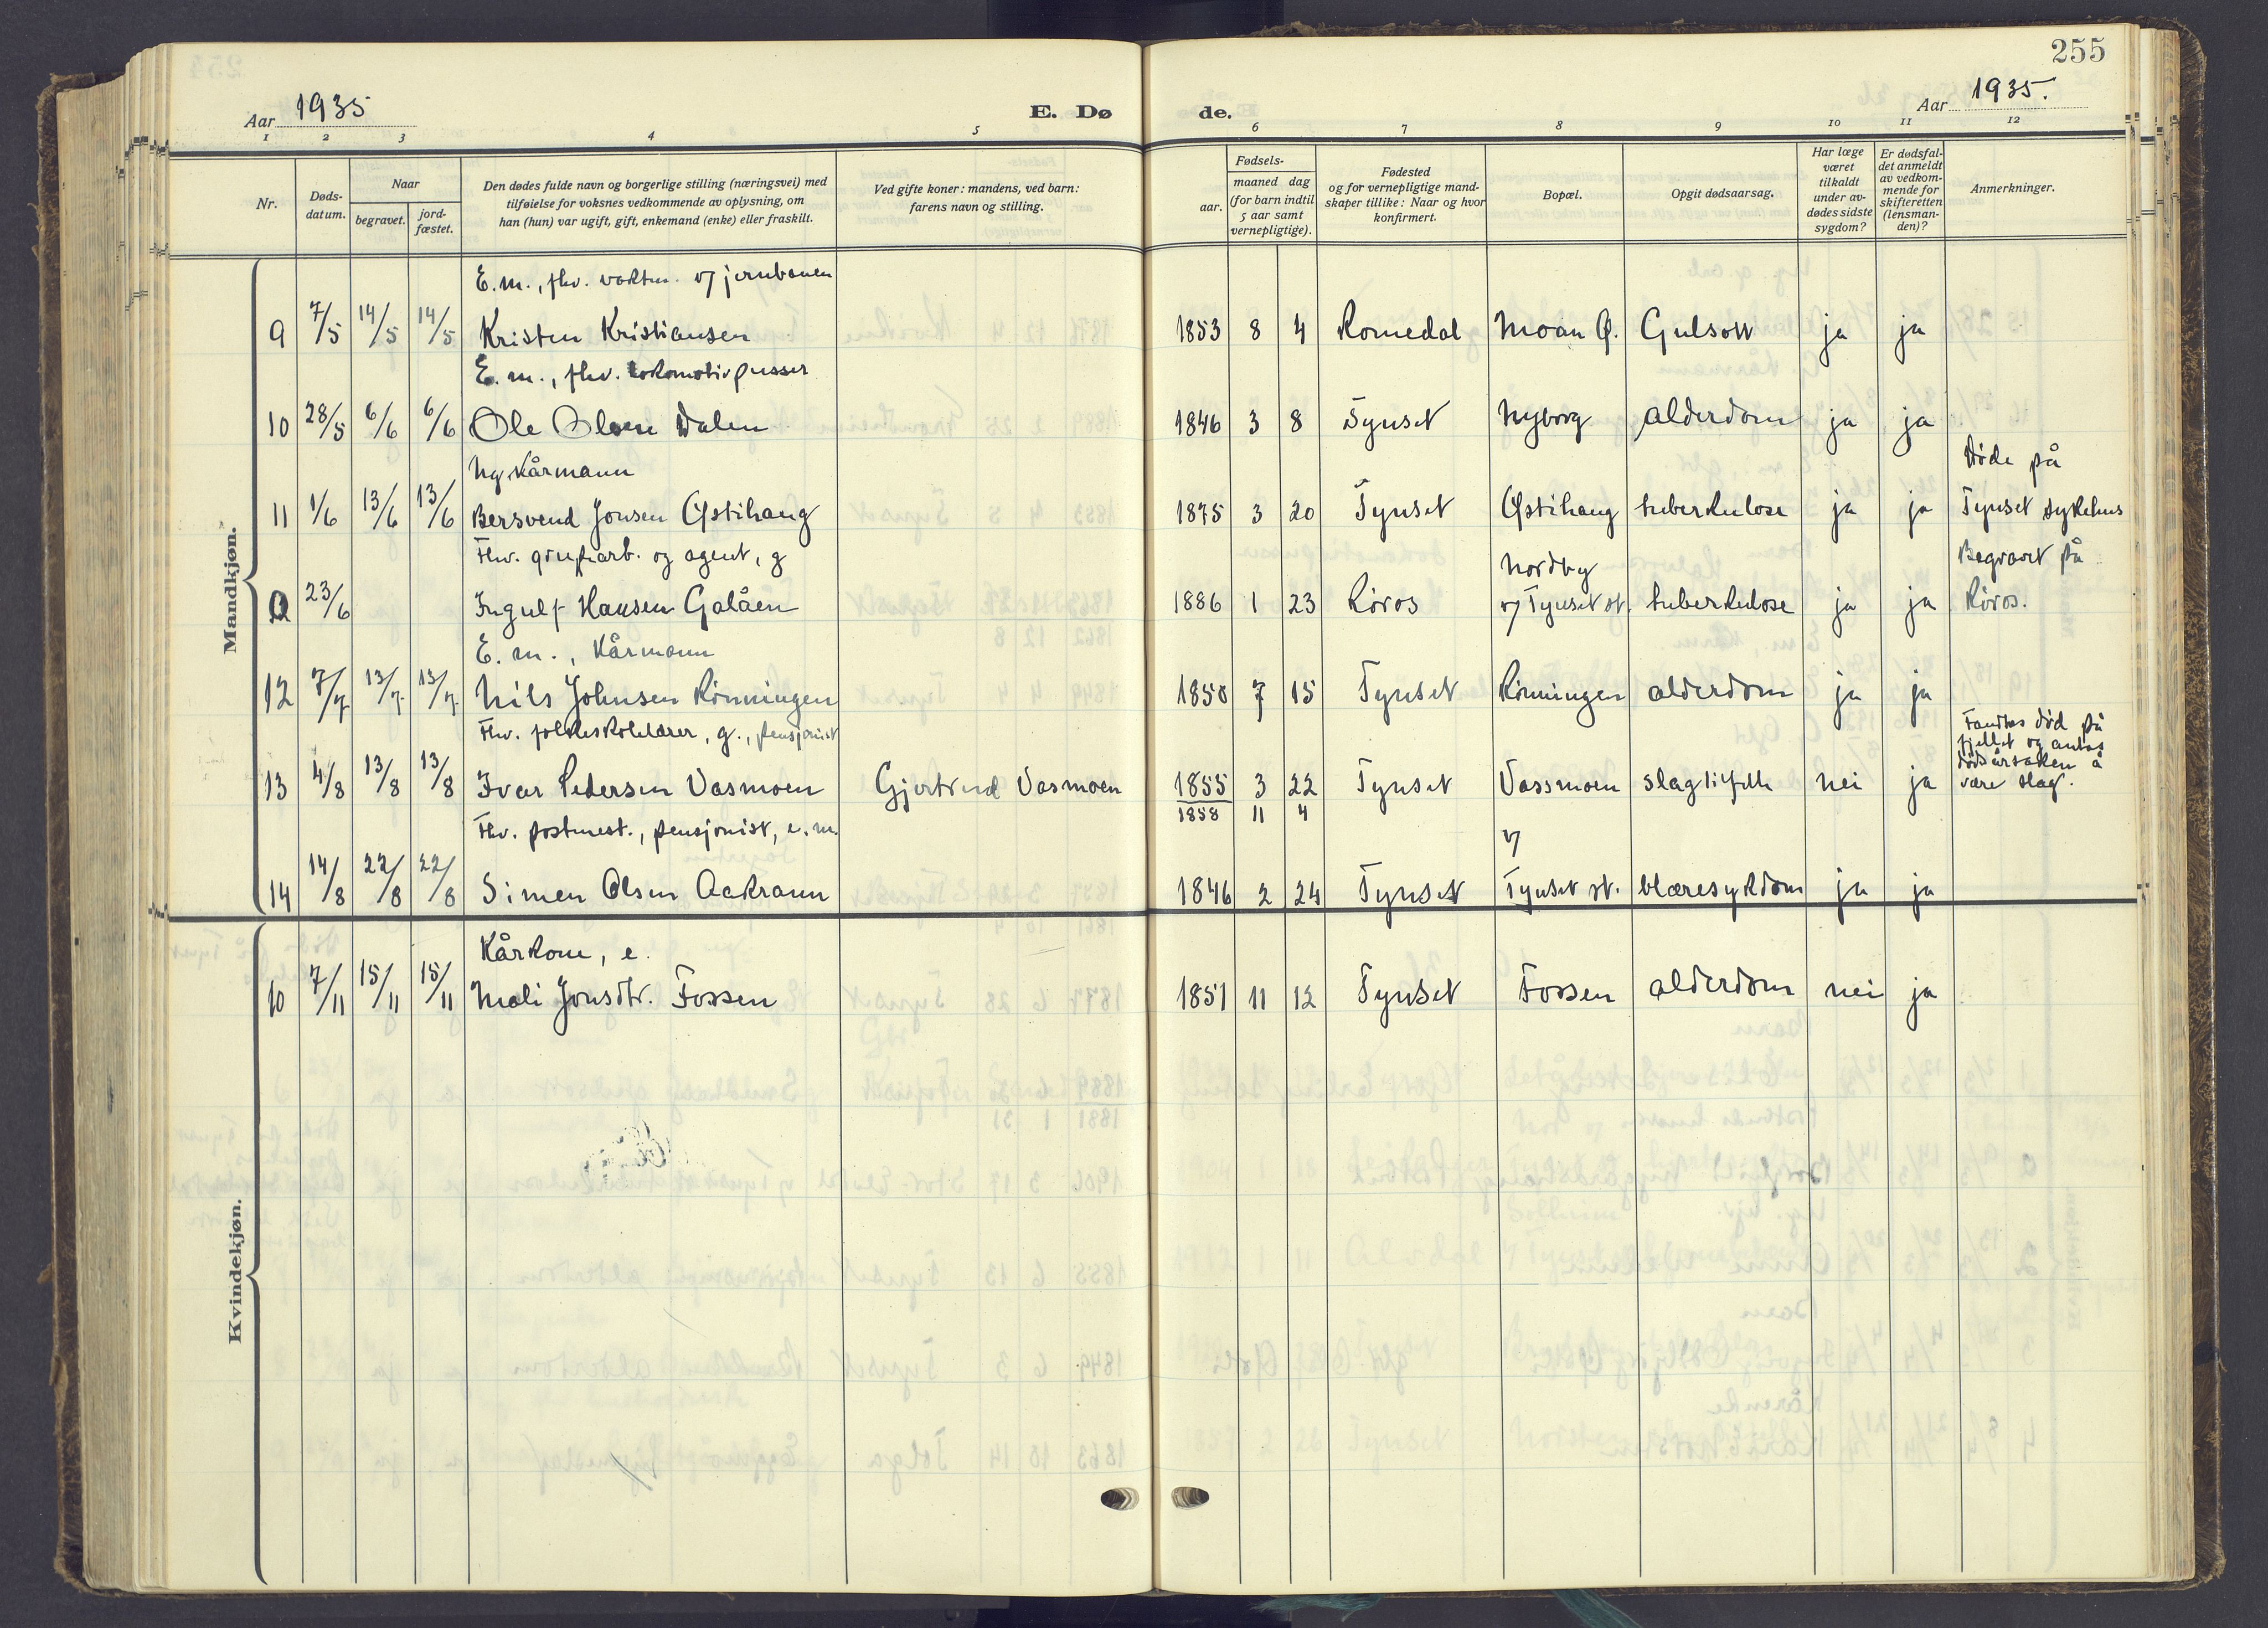 255
Aar 1935
E. Dø
de.
Aar 1935.
1 2 3 4 5 6 7 8 9 10 11 12
Nr.
Døds-
datum.
Naar
begravet.
jord-
fæstet.
Den dødes fulde navn og borgerlige stilling (næringsvei) med
tilføielse for voksnes vedkommende av oplysning, om
han (hun) var ugift, gift, enkemand (enke) eller fraskilt.
Ved gifte koner: mandens, ved barn:
farens navn og stilling.
Fødsels-
aar.
maaned dag
(for barn indtil
5 aar samt
vernepligtige).
Fødested
og for vernepligtige mand-
skaper tillike: Naar og hvor
konfirmert.
Bopæl.
Opgit dødsaarsag.
Har læge
været
tilkaldt
under av-
dødes sidste
sygdom?
Er dødsfal-
det anmeldt
av vedkom-
mende for
skifteretten
(lensman-
den)?
Anmerkninger.
Mandkjøn.
E.m., fhv. voktm. v/ jernbanen
9 7/5 14/5 14/5 Kristen Kristiansen 1853 8 4 Romedal Moan Ø. Gulsott ja ja
E.m., fhv. lokomotivpusser
10 28/5 6/6 6/6 Ole Olsen Dalen 1846 3 8 Tynset Nyborg alderdom ja ja
Ug. Kårmann
Døde på
11 1/6 13/6 13/6 Bersvend Jonsen Østihaug 1875 3 20 Tynset Østihaug tuberkulose ja ja Tynset sykehus
Fhv. grubearb. og agent, g
Nordby
Begravet på
a 23/6 Ingulf Hansen Galåen 1886 1 23 Røros v/ Tynset st. tuberkulose ja ja Røros.
E.m., Kårmann
12 7/7 13/7 13/7 Nils Johnsen Rønningen 1850 7 15 Tynset Rønningen alderdom ja ja
Fhv. folkeskolelærer, g., pensjonist
Fandtes død på
fjellet og antas
dødsårsaken å
være slag.
13 4/8 13/8 13/8 Ivar Pedersen Vasmoen Gjertrud Vasmoen 1855 3 22 Tynset Vassmoen slagtilfelle nei ja
1858 11 4
Fhv. postmest., pensjonist, e.m.
v/
14 14/8 22/8 22/8 Simen Olsen Aakrann 1846 2 24 Tynset Tynset st. blæresykdom ja ja
Kvindekjøn.
Kårkone, e.
10 7/11 15/11 15/11 Mali Jonsdtr. Fossen 1851 11 12 Tynset Fossen alderdom nei ja